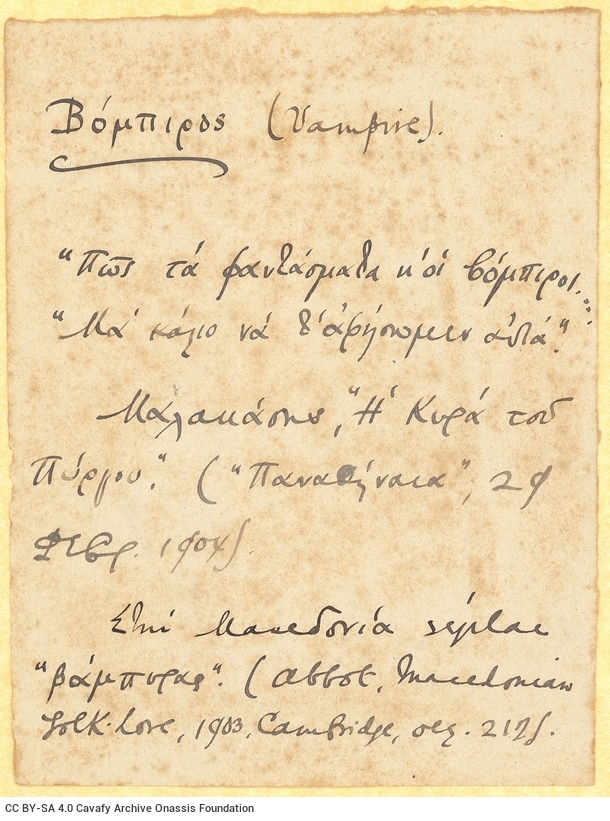 Βόμπιρος (Vampire).
"Πῶς τά φαντάσματα κ' οἱ βόμπιροι...
"Μά κάλιο νά τ' ἀφήσωμεν αὐτά".
Μαλακάσης, "Η Κυρά τοῦ
Πύργου". ("Παναθήναια", 29
Φεβρ. 1904).
Στη Μακεδονία λέγεται
"βάμπυρας". (Abbot, Macedonian
Folk-lore, 1903, Cambridge, σελ. 217).
CC BY-SA 4.0 Cavafy Archive Onassis Foundation